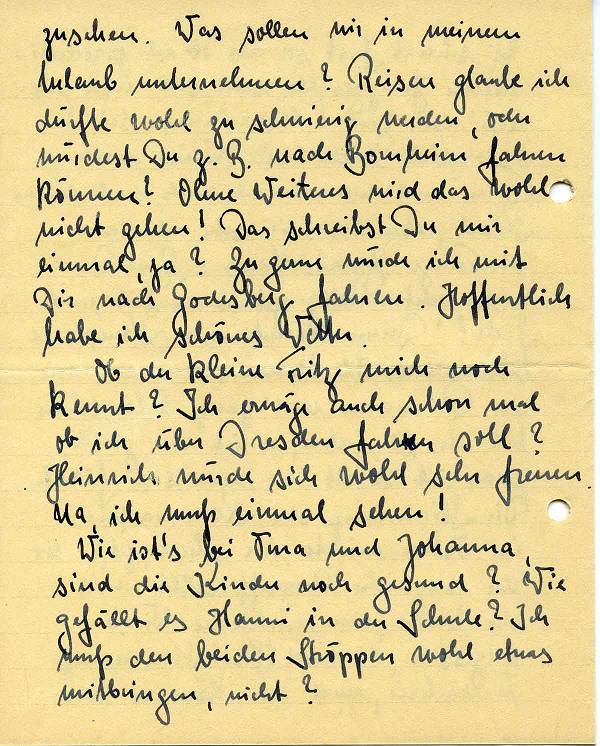 zusehen. Was sollen wir in meinem
Urlaub unternehmen? Reisen glaube ich
dürfte wohl zu schwierig werden, oder
würdest Du z. B. nach Bornheim fahren
können? Ohne Weiteres wird das wohl
nicht gehen! Das schreibst Du mir
einmal, ja? Zu gerne würde ich mit
Dir nach Godesberg fahren. Hoffentlich
habe ich schönes Wetter.
Ob der kleine Fritz mich noch
kennt? Ich erwäge auch schon mal
ob ich über Dresden fahren soll?
Heinrich würde sich wohl sehr freuen.
Na, ich muß einmal sehen!
Wie ist's bei Oma und Johanna,
sind die Kinder noch gesund? Wie
gefällt es Hanni in der Schule? Ich
muß den beiden Ströppen wohl etwas
mitbringen, nicht?